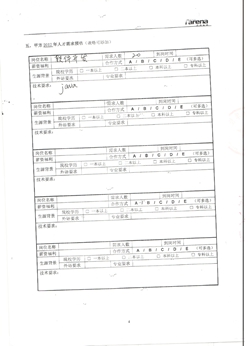 Tarena
五、甲方2012年人才需求情况（请填写详细）
岗位名称 软件开发 需求人数 20 到岗时间
薪资福利 合作方式 A / B / C / D / E （可多选）
生源背景 院校学历 □ 一本以上 □ 二本以上 □ 本科以上 □ 专科以上
外语要求 专业要求
技术要求：
java
岗位名称 需求人数 到岗时间
薪资福利 合作方式 A / B / C / D / E （可多选）
生源背景 院校学历 □ 一本以上 □ 二本以上 □ 本科以上 □ 专科以上
外语要求 专业要求
技术要求：
岗位名称 需求人数 到岗时间
薪资福利 合作方式 A / B / C / D / E （可多选）
生源背景 院校学历 □ 一本以上 □ 二本以上 □ 本科以上 □ 专科以上
外语要求 专业要求
技术要求：
岗位名称 需求人数 到岗时间
薪资福利 合作方式 A / B / C / D / E （可多选）
生源背景 院校学历 □ 一本以上 □ 二本以上 □ 本科以上 □ 专科以上
外语要求 专业要求
技术要求：
岗位名称 需求人数 到岗时间
薪资福利 合作方式 A / B / C / D / E （可多选）
生源背景 院校学历 □ 一本以上 □ 二本以上 □ 本科以上 □ 专科以上
外语要求 专业要求
技术要求：